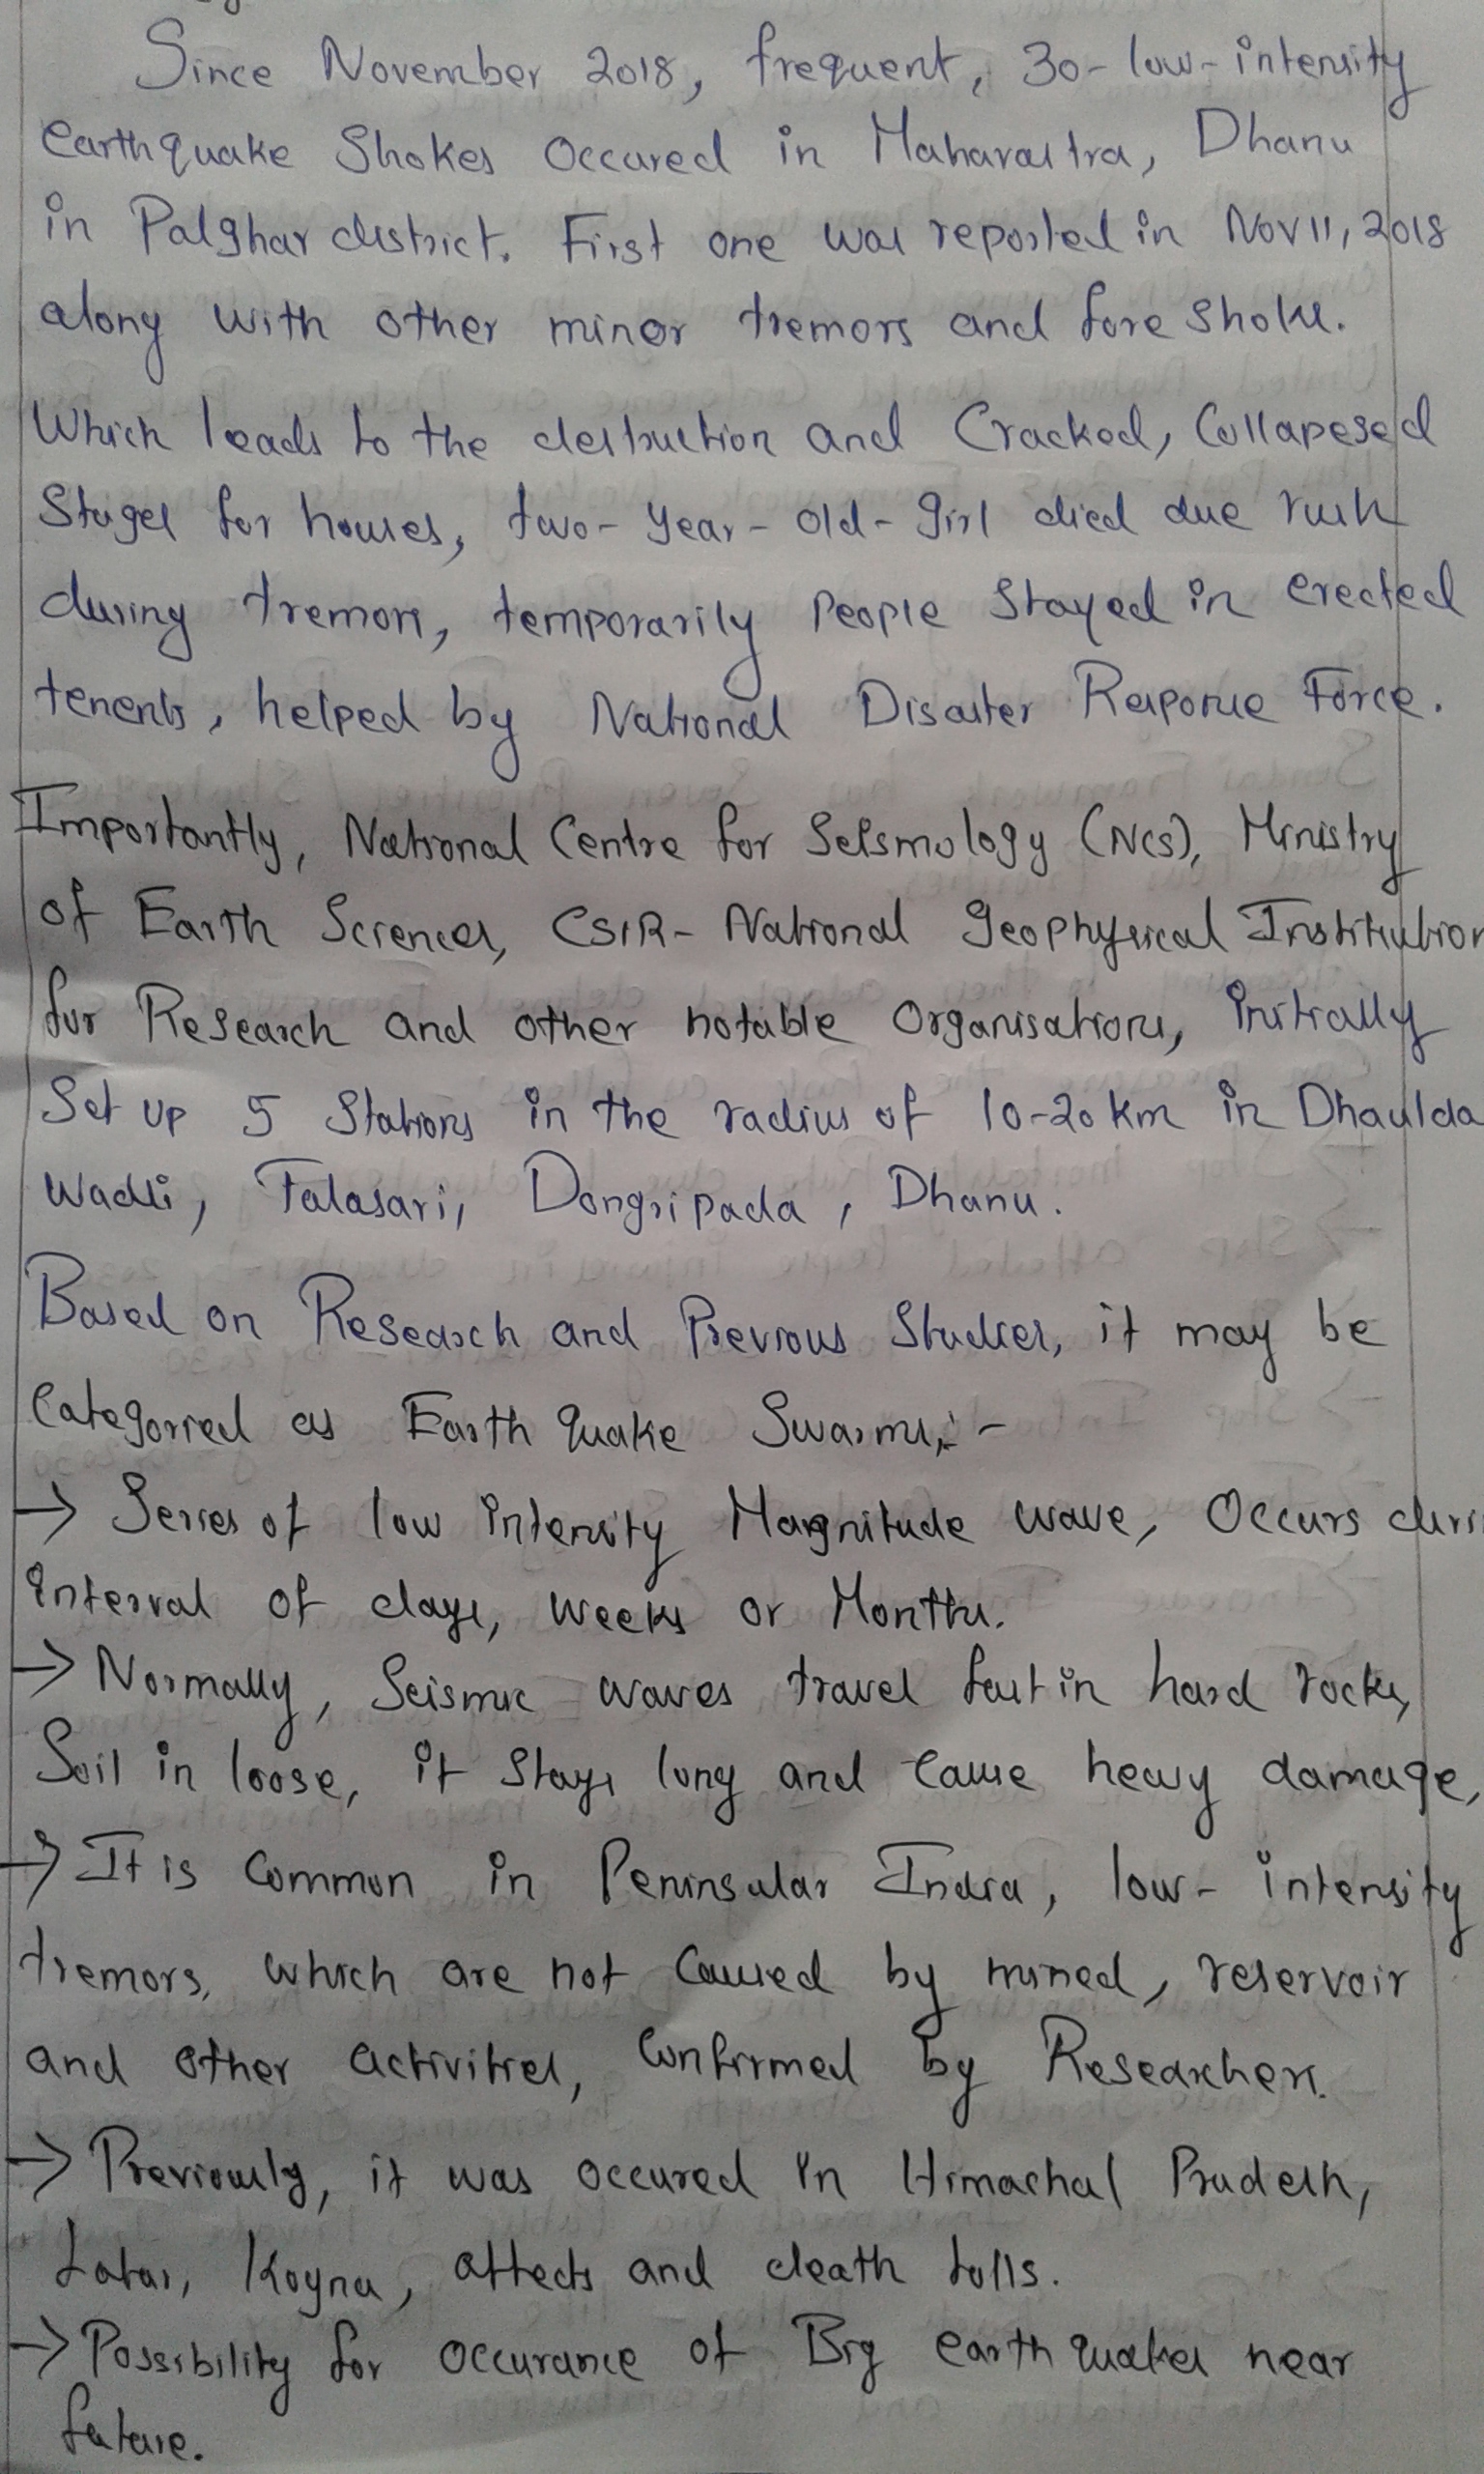 Since November 2018, frequent, 30-low-intensity
earthquake Shokes Occured in Maharastra, Dhanu
in Palghar district. First one was reported in Nov 11, 2018
along with other minor tremors and fore shoke.
Which leads to the destruction and Cracked, Collapesed
Stages for houses, two-year-old-girl died due rush
during tremors, temporarily people stayed in erected
tenents, helped by National Disaster Response Force.
Importantly, National Centre for Seismology (NCS), Ministry
of Earth Sciences, CSIR-National Geophysical Institution
for Research and other notable Organisations, initially
Set up 5 Stations in the radius of 10-20 km in Dhaulda
Wadi, Talasari, Dongripada, Dhanu.
Based on Research and Previous Studies, it may be
Categoried as Earth quake Swarms:-
→ Series of low intensity Magnitude wave, Occurs duri
interval of days, weeks or Months.
→ Normally, Seismic waves travel fast in hard rocks,
Soil in loose, it stays long and cause heavy damage,
→ It is Common in Peninsular India, low-intensity
tremors, which are not Caused by mined, reservoir
and other activities, Confirmed by Researchers.
→ Previously, it was occured in Himachal Pradesh,
Latur, Koyna, affects and death tolls.
→ Possibility for occurance of Big earth quakes near
future.